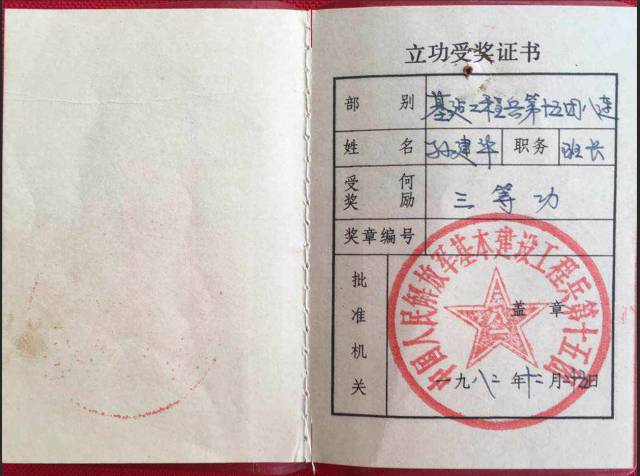 立功受奖证书
部别 基建工程兵第十五团八连
姓名 孙建华 职务 班长
受何奖励 三等功
奖章编号
批准机关
中国人民解放军基本建设工程兵第十五团
盖章
一九八二年十二月二十五日